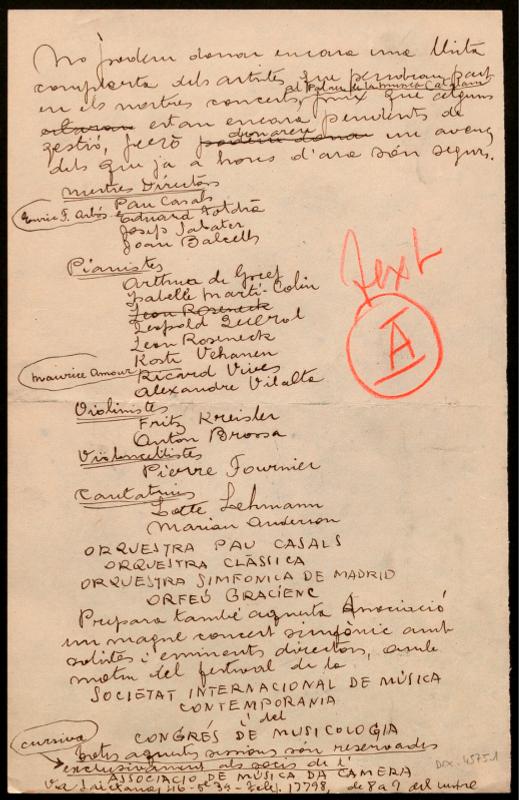 No podem donar encara una llista
completa dels artistes que pendran part
en els nostres concerts, al Palau de la Música Catalana
puix que alguns
estan encara pendents de
gestió, però podem donar donarem un avenç
dels que ja a hores d'ara són segurs.
Mestres Directors
Pau Casals
Enric F. Arbós Eduard Toldrà
Josep Sabater
Joan Balcells
Pianistes
Arthur de Greef
Isabelle Martí-Colin
Leon Roseneck
Leopold Querol
Leon Roseneck
Kosti Vehanen
Maurice Amour Ricard Vives
Alexandre Vilalta
Violinistes
Fritz Kreisler
Anton Brossa
Violoncellistes
Pierre Fournier
Cantatrius
Lotte Lehmann
Marian Anderson
ORQUESTRA PAU CASALS
ORQUESTRA CLÀSSICA
ORQUESTRA SIMFONICA DE MADRID
ORFEÓ GRACIENC
Prepara també aquesta Associació
un magne concert simfònic amb
solistes i eminents directors, amb
motiu del festival de la
SOCIETAT INTERNACIONAL DE MÚSICA
CONTEMPORANIA
i del
CONGRÉS DE MUSICOLOGIA
cursiva
totes aquestes sessions són reservades
exclusivament als socis de l'
ASSOCIACIO DE MÚSICA DA CAMERA
Via Laietana, 46 - Telef. 17798, de 8 a 9 del vespre
Text
A